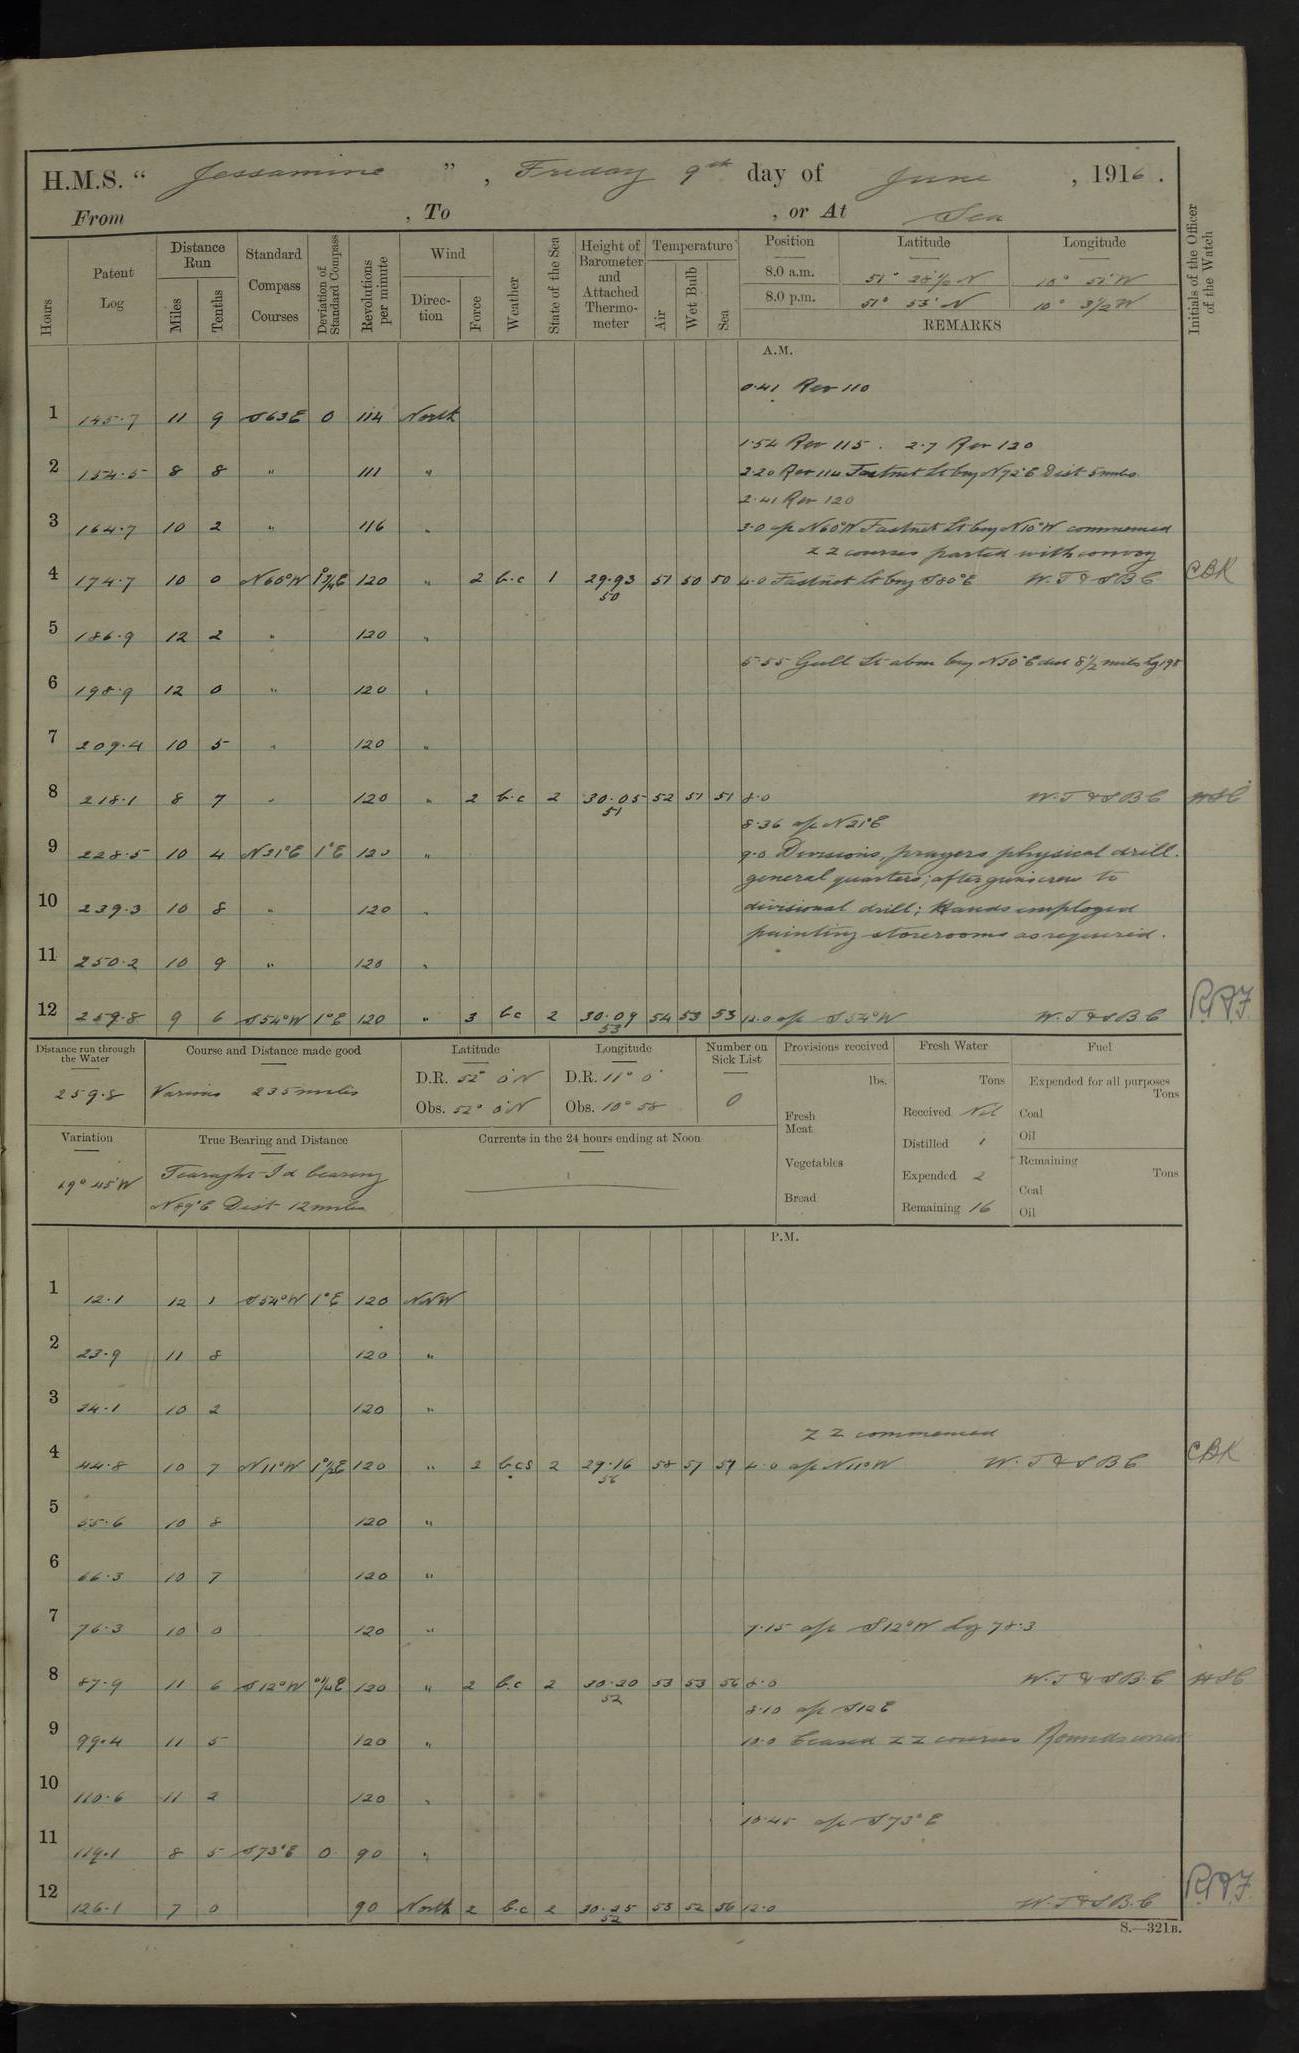 H.M.S. " Jessamine ", Friday 9th day of June, 1916.
From , To , or At Sea
Hours
Patent Log
Distance Run
Miles
Tenths
Standard Compass Courses
Deviation of Standard Compass
Revolutions per minute
Wind
Direction
Force
Weather
State of the Sea
Height of Barometer and Attached Thermometer
Temperature
Air
Wet Bulb
Sea
Position Latitude Longitude
8.0 a.m. 51° 28½ N 10° 51' W
8.0 p.m. 51° 53' N 10° 3½ W
REMARKS
Initials of the Officer of the Watch
A.M.
0.41 Rev 110
1 145.7 11 9 S63E 0 114 North
1.54 Rev 115. 2.7 Rev 120
2 154.5 8 8 " 111 " 2.20 Rev 114 Fastnet Lt brg N72°E Dist 5 miles
2.41 Rev 120
3 164.7 10 2 " 116 " 3.0 a/c N60°W Fastnet Lt brg N10°W commenced
ZZ courses parted with convoy
4 174.7 10 0 N60°W 1¾E 120 " 2 b.c 1 29.93 51 50 50 4.0 Fastnet Lt brg S80°E W.T & S B C CBK
50
5 186.9 12 2 " 120 "
5.55 Gull Lt abm brg N30°E dist 8½ miles lg 198
6 198.9 12 0 " 120 "
7 209.4 10 5 " 120 "
8 218.1 8 7 " 120 " 2 b.c 2 30.05 52 51 51 8.0 W.T & S B C
51
8.36 a/c N31°E
9 228.5 10 4 N31°E 1°E 120 " 9.0 Divisions, prayers physical drill.
general quarters; after guns crew to
10 239.3 10 8 " 120 " divisional drill; Hands employed
painting storerooms as required.
11 250.2 10 9 " 120 "
12 259.8 9 6 S54°W 1°E 120 " 3 bc 2 30.09 54 53 53 12.0 a/c S54°W W.T & S B C
53
Distance run through the Water
259.8
Course and Distance made good
Various 235 miles
Latitude
D.R. 52° 0' N
Obs. 52° 0' N
Longitude
D.R. 11° 0'
Obs. 10° 58
Number on Sick List
0
Provisions received
lbs.
Fresh Meat
Vegetables
Bread
Fresh Water
Tons
Received Nil
Distilled 1
Expended 2
Remaining 16
Fuel
Expended for all purposes
Tons
Coal
Oil
Remaining
Tons
Coal
Oil
Variation
19° 45' W
True Bearing and Distance
Tearaght Id bearing
N89°E Dist 12 miles
Currents in the 24 hours ending at Noon
P.M.
1 12.1 12 1 S54°W 1°E 120 NNW
2 23.9 11 8 120 "
3 34.1 10 2 120 "
ZZ commenced
4 44.8 10 7 N11°W 1½E 120 " 2 bcs 2 29.16 58 57 57 4.0 a/c N11°W W.T & S B C CBK
56
5 55.6 10 8 120 "
6 66.3 10 7 120 "
7 76.3 10 0 120 " 7.15 a/c S12°W lg 78.3
8 87.9 11 6 S12°W ¼E 120 " 2 b.c 2 30.20 53 53 56 8.0 W.T & S B.C
52
8.10 a/c S12E
9 99.4 11 5 120 " 10.0 Ceased ZZ courses Rounds correct
10 110.6 11 2 120 "
10.45 a/c S73°E
11 119.1 8 5 S73°E 0 90 "
12 126.1 7 0 90 North 2 b.c 2 30.25 53 52 56 12.0 W.T & S B.C
52
S.—321B.